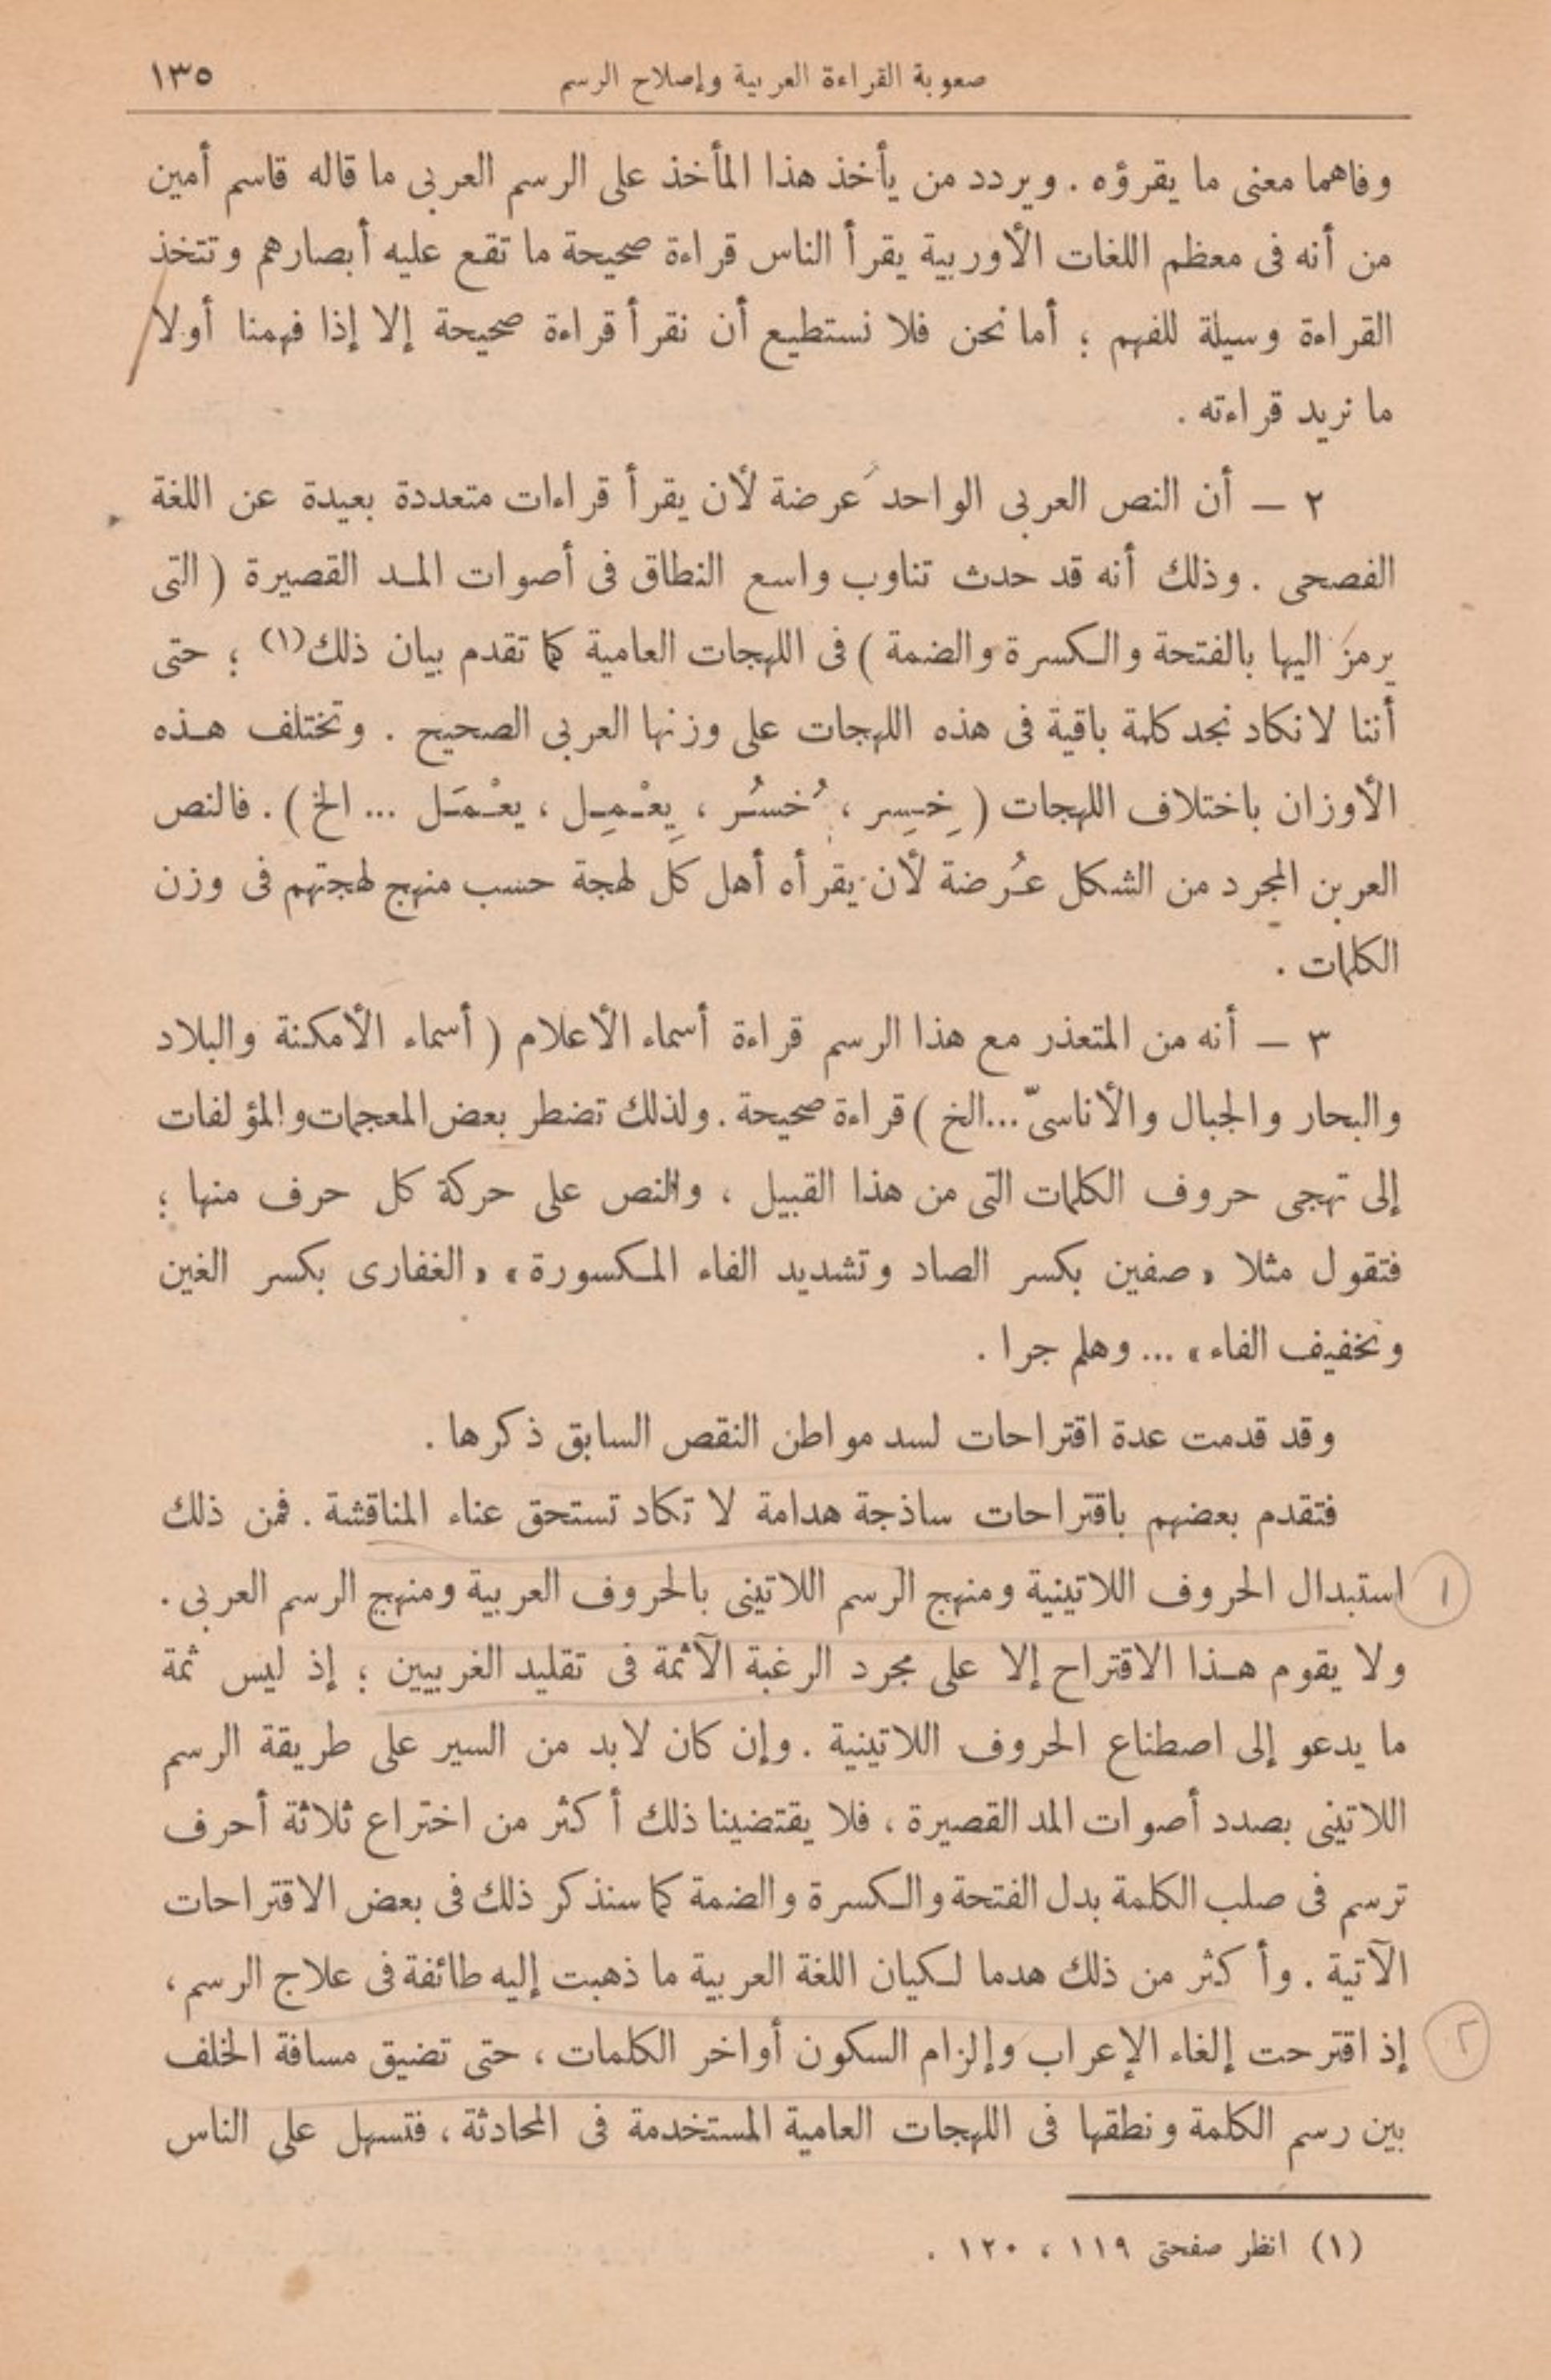 صعوبة القراءة العربية وإصلاح الرسم ١٣٥
وفاهما معنى ما يقرؤه . ويردد من يأخذ هذا المأخذ على الرسم العربى ما قاله قاسم أمين
من أنه فى معظم اللغات الأوربية يقرأ الناس قراءة صحيحة ما تقع عليه أبصارهم وتتخذ
القراءة وسيلة للفهم ؛ أما نحن فلا نستطيع أن نقرأ قراءة صحيحة إلا إذا فهمنا أولا
ما نريد قراءته .
٢ — أن النص العربى الواحد عرضة لأن يقرأ قراءات متعددة بعيدة عن اللغة
الفصحى . وذلك أنه قد حدث تناوب واسع النطاق فى أصوات المد القصيرة ( التى
يرمز اليها بالفتحة والكسرة والضمة ) فى اللهجات العامية كما تقدم بيان ذلك(١) ؛ حتى
أننا لا نكاد نجد كلمة باقية فى هذه اللهجات على وزنها العربى الصحيح . وتختلف هذه
الأوزان باختلاف اللهجات ( خِسِر ، خُسُر ، يِعْمِل ، يعْمَل ... الخ ) . فالنص
العربن المجرد من الشكل عُرضة لأن يقرأه أهل كل لهجة حسب منهج لهجتهم فى وزن
الكلمات .
٣ — أنه من المتعذر مع هذا الرسم قراءة أسماء الأعلام ( أسماء الأمكنة والبلاد
والبحار والجبال والأناسىّ ... الخ ) قراءة صحيحة . ولذلك تضطر بعض المعجمات والمؤلفات
إلى تهجى حروف الكلمات التى من هذا القبيل ، والنص على حركة كل حرف منها ؛
فتقول مثلا « صفين بكسر الصاد وتشديد الفاء المكسورة » « الغفارى بكسر الغين
وتخفيف الفاء » ... وهلم جرا .
وقد قدمت عدة اقتراحات لسد مواطن النقص السابق ذكرها .
فتقدم بعضهم باقتراحات ساذجة هدامة لا تكاد تستحق عناء المناقشة . فمن ذلك
١ استبدال الحروف اللاتينية ومنهج الرسم اللاتينى بالحروف العربية ومنهج الرسم العربى .
ولا يقوم هذا الاقتراح إلا على مجرد الرغبة الآثمة فى تقليد الغربيين ؛ إذ ليس ثمة
ما يدعو إلى اصطناع الحروف اللاتينية . وإن كان لابد من السير على طريقة الرسم
اللاتينى بصدد أصوات المد القصيرة ، فلا يقتضينا ذلك أكثر من اختراع ثلاثة أحرف
ترسم فى صلب الكلمة بدل الفتحة والكسرة والضمة كما سنذكر ذلك فى بعض الاقتراحات
الآتية . وأكثر من ذلك هدما لكيان اللغة العربية ما ذهبت إليه طائفة فى علاج الرسم ،
٢ إذ اقترحت إلغاء الإعراب وإلزام السكون أواخر الكلمات ، حتى تضيق مسافة الخلف
بين رسم الكلمة ونطقها فى اللهجات العامية المستخدمة فى المحادثة ، فتسهل على الناس
(١) انظر صفحتى ١١٩ ، ١٢٠ .